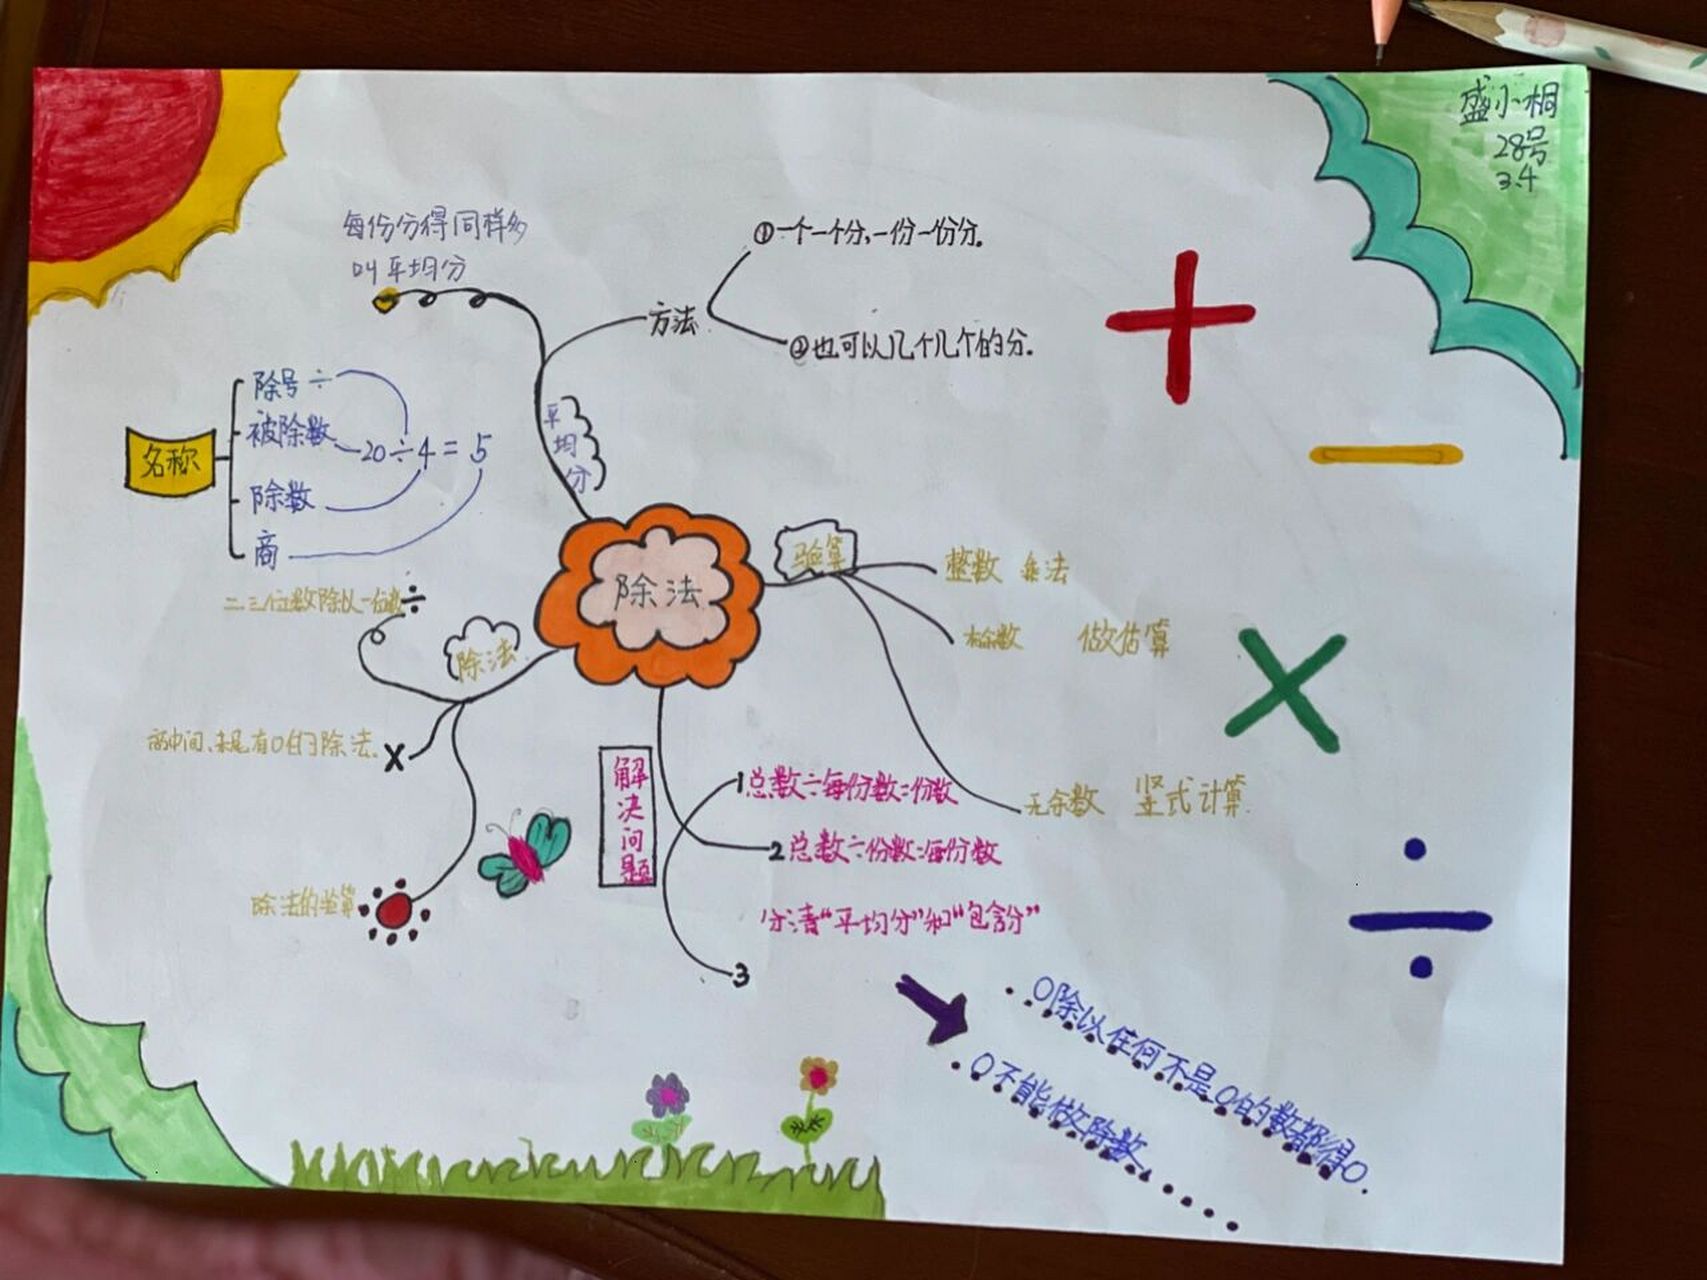 盛小桐
28号
3.4
每份分得同样多
叫平均分
方法
①一个一个分,一份一份分。
②也可以几个几个的分.
平均分
名称
除号÷
被除数
除数
商
20÷4=5
除法
验算
整数 乘法
做估算
无余数 竖式计算.
除法
二.三位数除以一位数÷
商中间、末尾有0的除法.
除法的验算
解决问题
1总数÷每份数=份数
2总数÷份数=每份数
分清“平均分”和“包含分”
3
0除以任何不是0的数都得0.
0不能做除数
+
-
×
÷